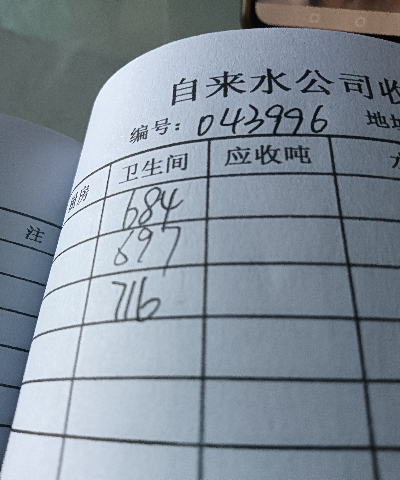 自来水公司收
编号: 043996 地址
厨房 卫生间 应收吨 水
684
697
716
注